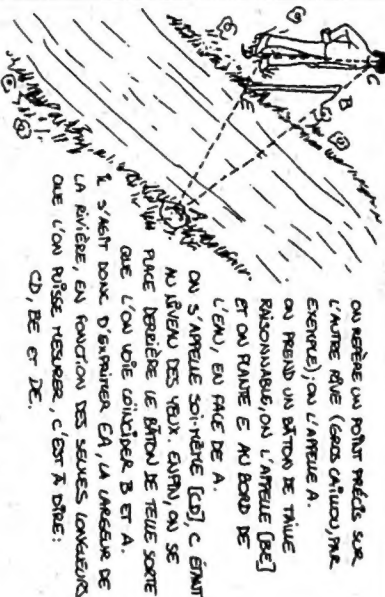 ON REPÈRE UN POINT PRÉCIS SUR
L'AUTRE RIVE (GROS CAILLOU, PAR
EXEMPLE), ON L'APPELLE A.
ON PREND UN BÂTON DE TAILLE
RAISONNABLE, ON L'APPELLE [BE]
ET ON PLANTE E AU BORD DE
L'EAU, EN FACE DE A.
ON S'APPELLE SOI-MÊME [CD], C ÉTANT
AU NIVEAU DES YEUX. ENFIN, ON SE
PLACE DERRIÈRE LE BÂTON DE TELLE SORTE
QUE L'ON VOIE COÏNCIDER B ET A.
IL S'AGIT DONC D'EXPRIMER EA, LA LARGEUR DE
LA RIVIÈRE, EN FONCTION DES SEULES LONGUEURS
QUE L'ON PUISSE MESURER, C'EST À DIRE:
CD, BE ET DE.
C
B
E
A